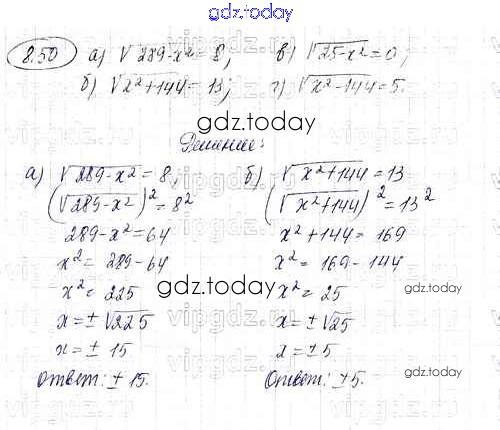 gdz.today
8.50 а) √289-x² = 8; в) √25-x² = 0;
б) √x²+144 = 13; г) √x²-144 = 5.
gdz.today
Решение:
а) √289-x² = 8
(√289-x²)² = 8²
289-x² = 64
x² = 289-64
x² = 225
x = ± √225
x = ± 15
Ответ: ± 15.
б) √x²+144 = 13
(√x²+144)² = 13²
x²+144 = 169
x² = 169-144
x² = 25
x = ± √25
x = ± 5
Ответ: ± 5.
gdz.today
gdz.today
gdz.today
gdz.today